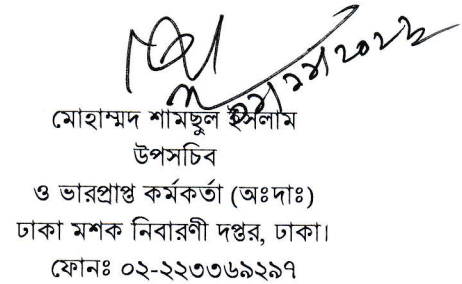 মোহাম্মদ শামছুল ইসলাম
উপসচিব
ও ভারপ্রাপ্ত কর্মকর্তা (অঃদাঃ)
ঢাকা মশক নিবারণী দপ্তর, ঢাকা।
ফোনঃ ০২-২২৩৩৬৯২৯৭